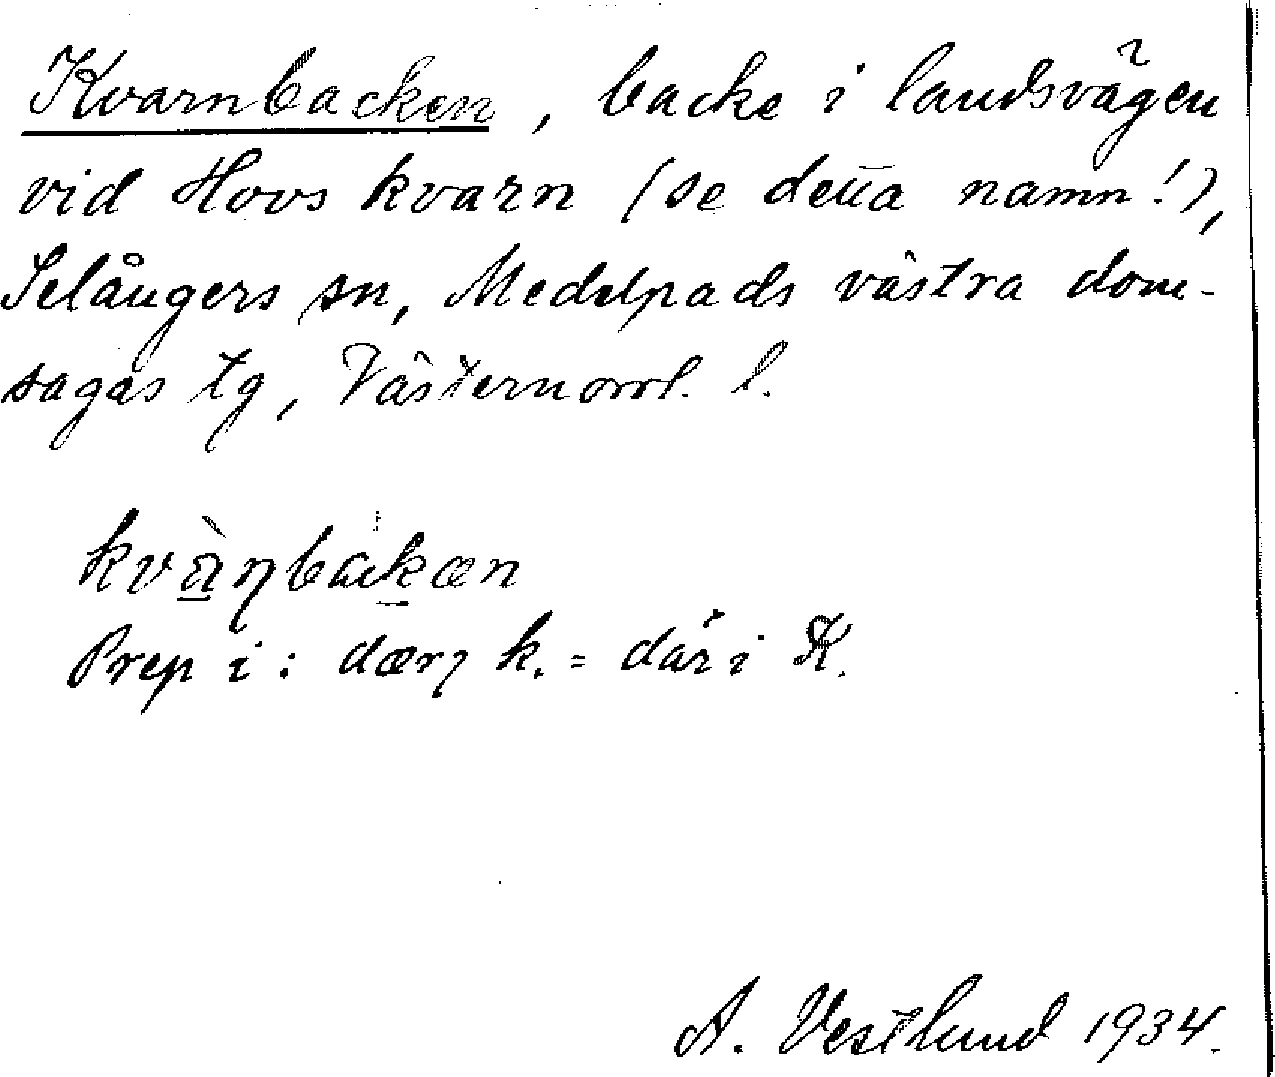 Kvarnbacken, backe i landsvägen
vid Hovs kvarn (se detta namn!),
Selångers sn, Medelpads västra dom-
sagas tg, Västernorrl. l.
kvànbakæn
Prep i: dær k. = där i K.
A. Vestlund 1934.